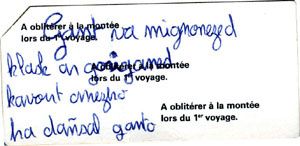 A oblitérer à la montée
lors du 1er voyage.
Gant va mignoned
klask an
A oblitérer à la montée
lors du 1er voyage.
kavout anezho
A oblitérer à la montée
lors du 1er voyage.
ha dañsal ganto